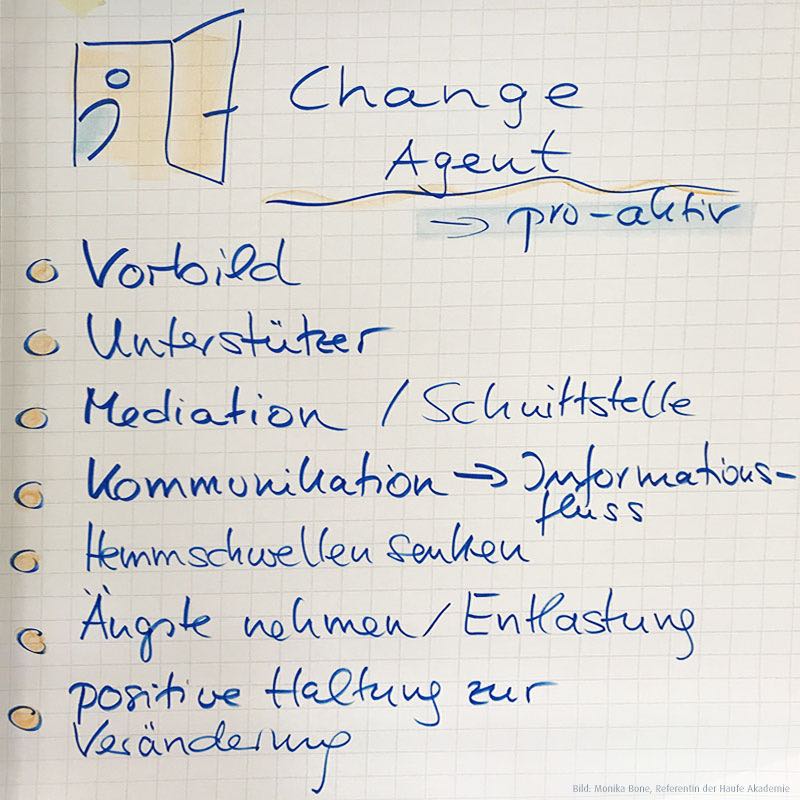 Change
Agent
→ pro-aktiv
Vorbild
Unterstützer
Mediation / Schnittstelle
Kommunikation → Informations-
fluss
Hemmschwellen senken
Ängste nehmen / Entlastung
positive Haltung zur
Veränderung
Bild: Monika Bone, Referentin der Haufe Akademie